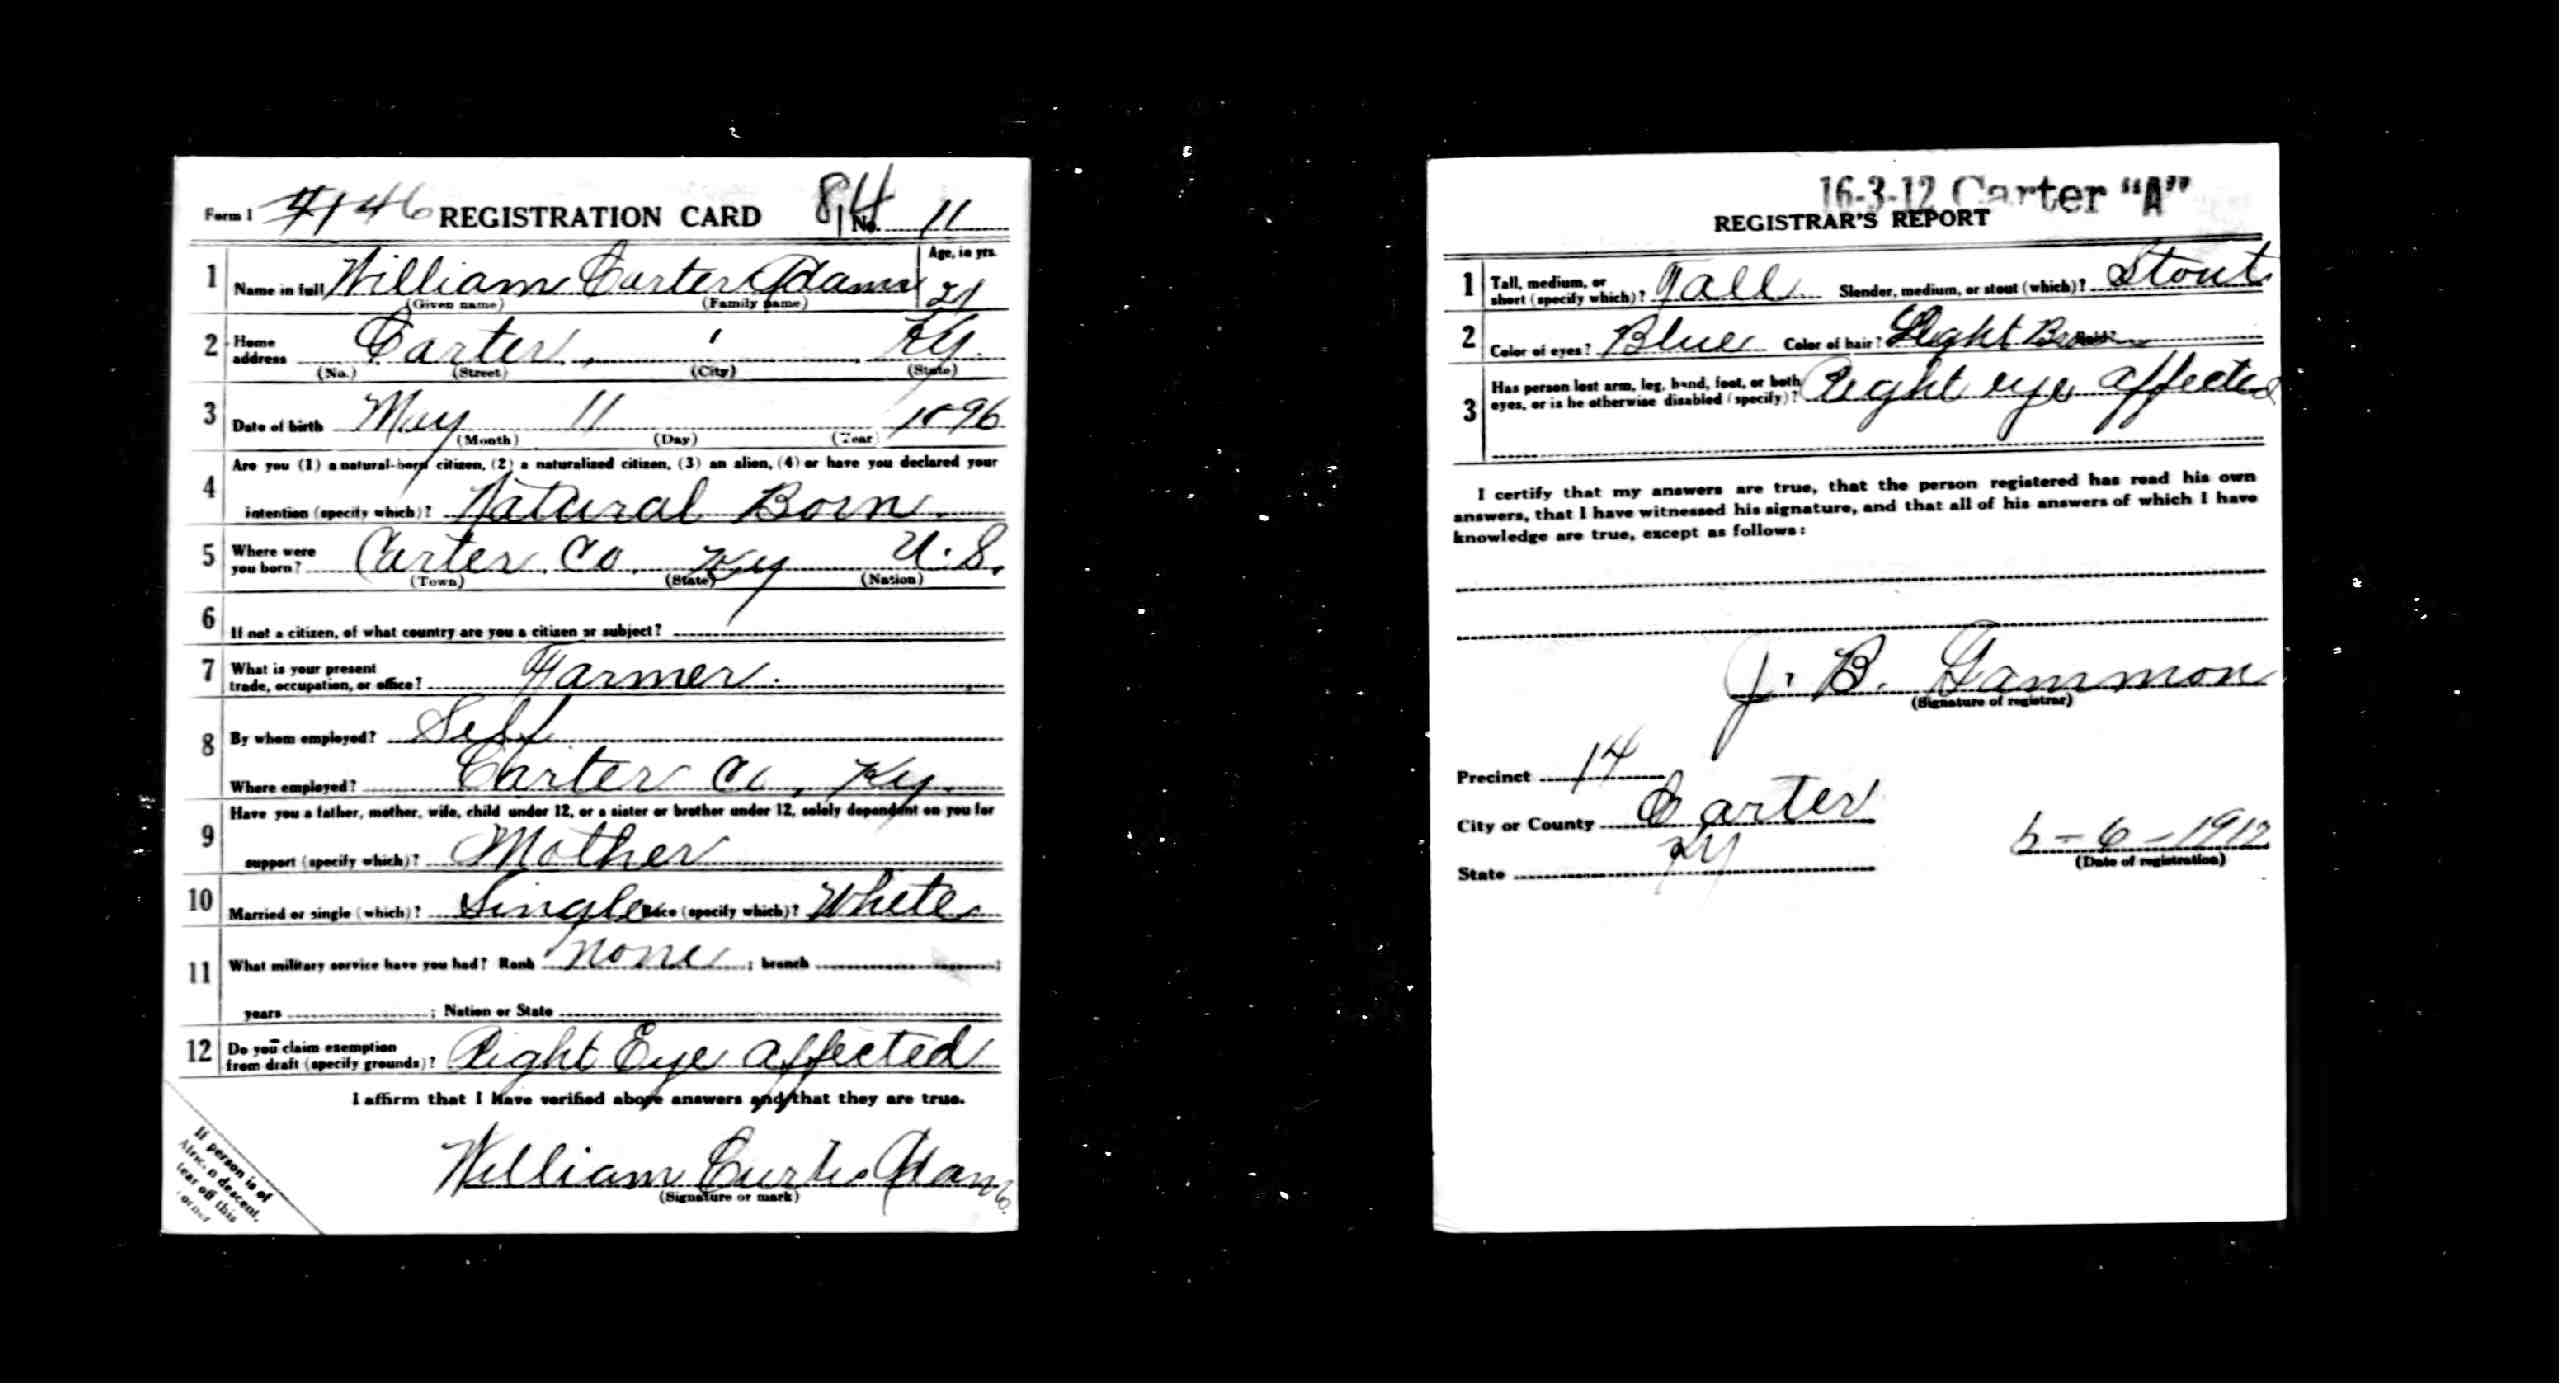 Form 1 4146 REGISTRATION CARD 814 No. 11
1 Name in full William Carter Adams Age, in yrs. 21
(Given name) (Family name)
2 Home address Carter, Ky.
(No.) (Street) (City) (State)
3 Date of birth May 11 1896
(Month) (Day) (Year)
4 Are you (1) a natural-born citizen, (2) a naturalized citizen, (3) an alien, (4) or have you declared your
intention (specify which)? Natural Born
5 Where were you born? Carter Co. Ky U.S.
(Town) (State) (Nation)
6 If not a citizen, of what country are you a citizen or subject?
7 What is your present trade, occupation, or office? Farmer.
8 By whom employed? Self
Where employed? Carter Co, Ky.
9 Have you a father, mother, wife, child under 12, or a sister or brother under 12, solely dependent on you for
support (specify which)? Mother
10 Married or single (which)? Single Race (specify which)? White
11 What military service have you had? Rank none ; branch ;
years ; Nation or State
12 Do you claim exemption from draft (specify grounds)? Right Eye affected
I affirm that I have verified above answers and that they are true.
William Curtis Adams.
(Signature or mark)
If person is of
African descent,
tear off this
corner
16-3-12 Carter "A"
REGISTRAR'S REPORT
1 Tall, medium, or short (specify which)? Tall Slender, medium, or stout (which)? Stout
2 Color of eyes? Blue Color of hair? Light Brown Bald?
3 Has person lost arm, leg, hand, foot, or both eyes, or is he otherwise disabled (specify)? Right eye affected
I certify that my answers are true, that the person registered has read his own
answers, that I have witnessed his signature, and that all of his answers of which I have
knowledge are true, except as follows:
J. B. Gammon
(Signature of registrar)
Precinct 14
City or County Carter
State Ky
6-6-1917
(Date of registration)